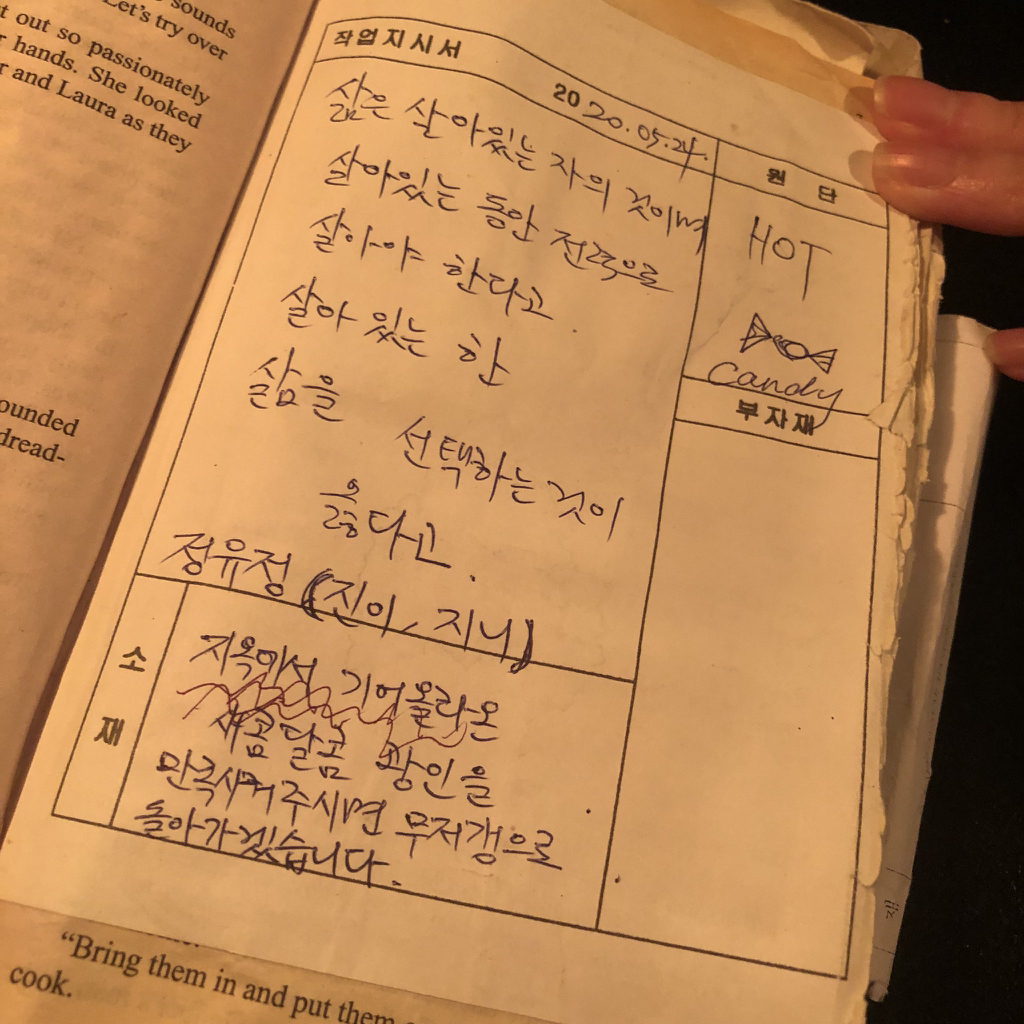 sounds
Let's try over
t out so passionately
r hands. She looked
r and Laura as they
ounded
dread-
작업지시서
2020.05.24.
삶은 살아있는 자의 것이며
살아있는 동안 전력으로
살아야 한다고.
살아 있는 한
삶을
선택하는 것이
옳다고.
정유정 (진이, 지니)
원 단
HOT
candy
부자재
소
재
지옥에서 기어올라온
새콤달콤 광인을
만족시켜주시면 무저갱으로
돌아가겠습니다.
"Bring them in and put them
cook.